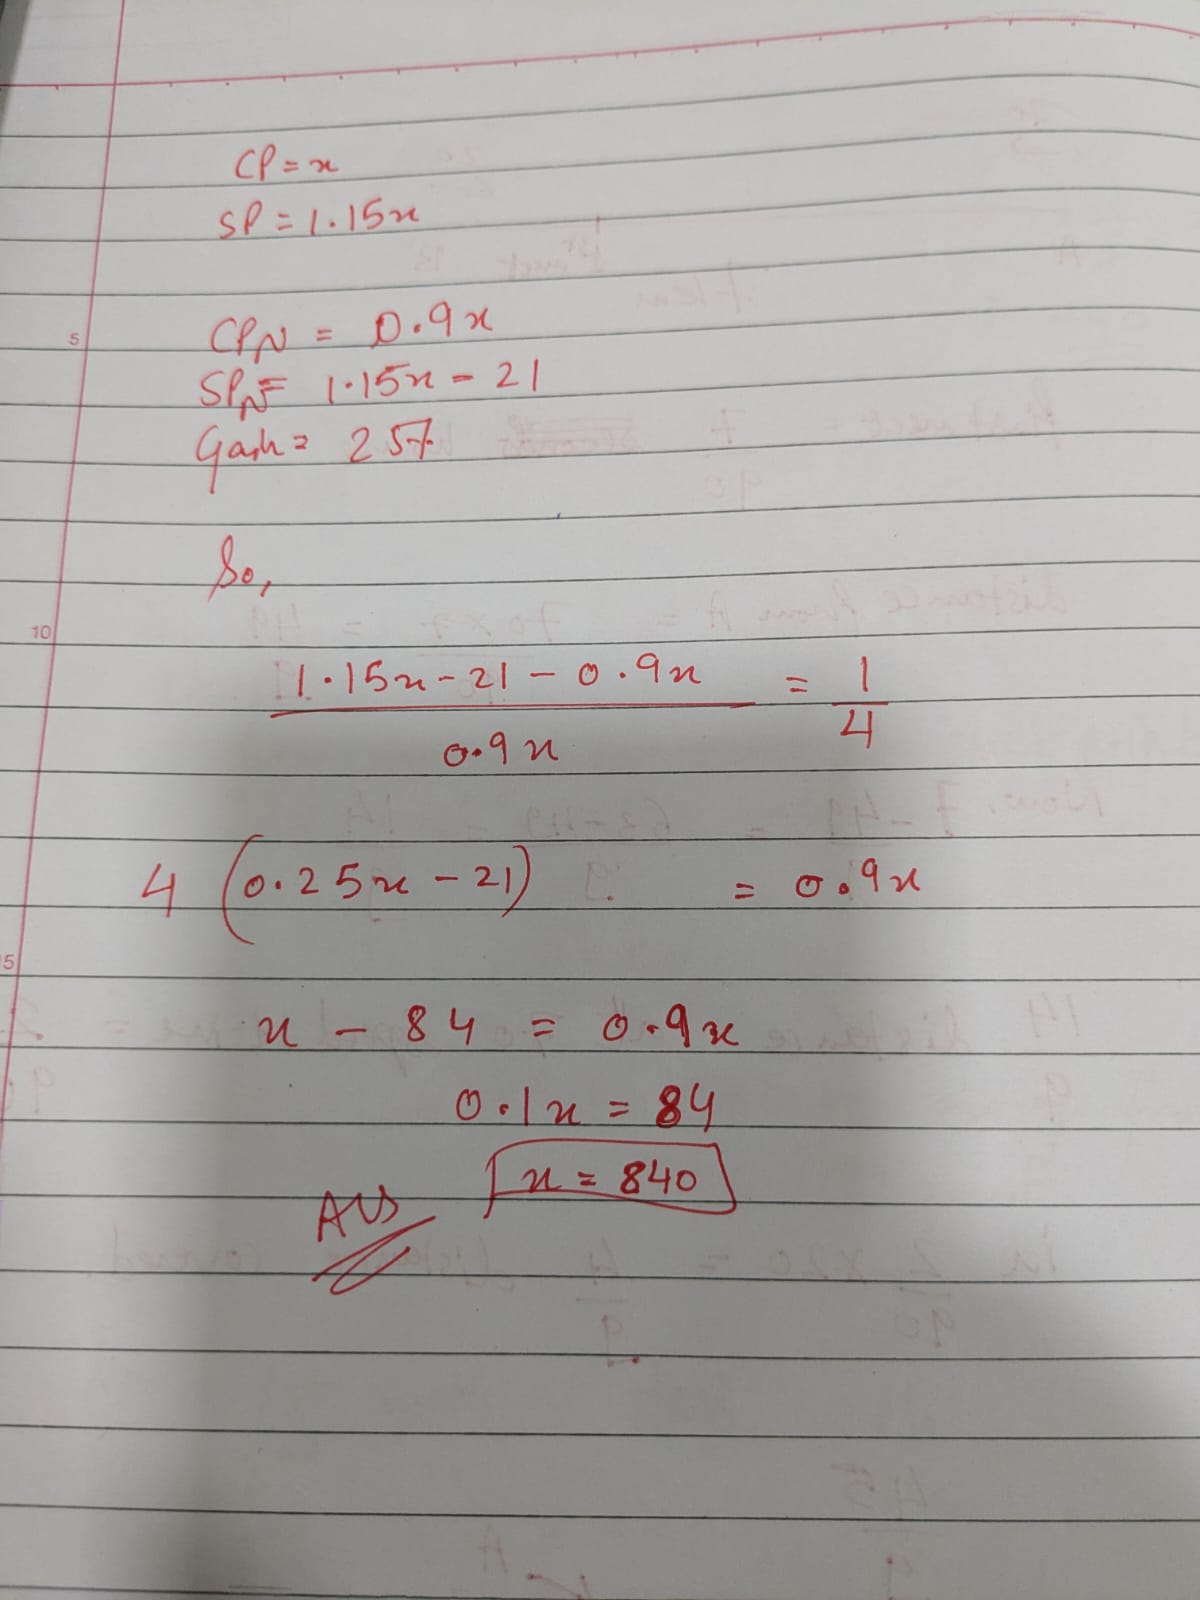 CP = x
SP = 1.15x
5
CPN = 0.9x
SPN = 1.15x - 21
Gain = 25%
So,
10
1.15x - 21 - 0.9x = 1
0.9x 4
4 (0.25x - 21) = 0.9x
15
x - 84 = 0.9x
0.1x = 84
x = 840
Ans